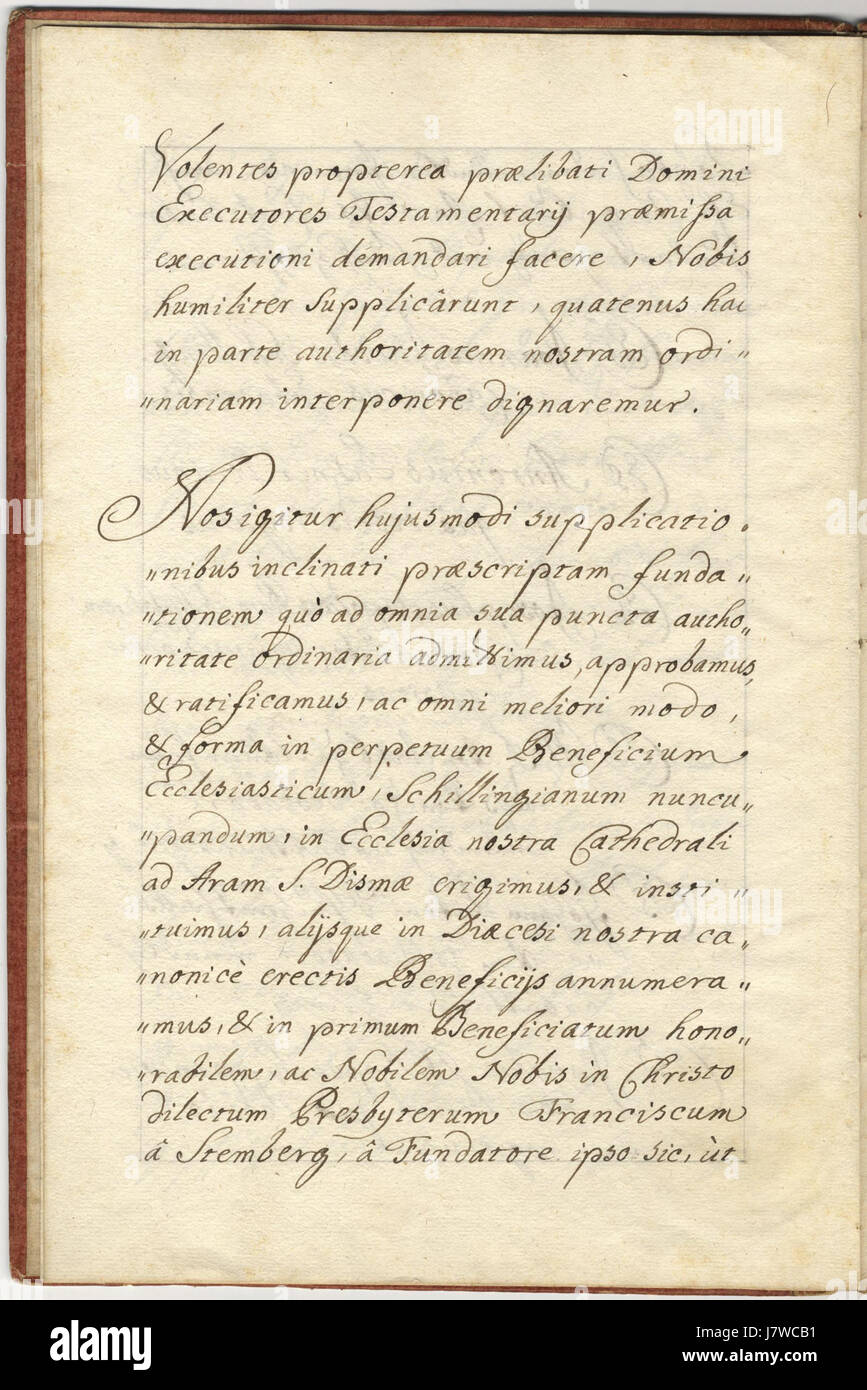 Volentes propterea prælibati Domini
Executores Testamentarij præmissa
executioni demandari facere, Nobis
humiliter supplicârunt, quatenus hac
in parte authoritatem nostram ordi„
„nariam interponere dignaremur.
Nos igitur hujusmodi supplicatio„
„nibus inclinati præscriptam funda„
„tionem quò ad omnia sua puncta autho„
„ritate ordinaria admittimus, approbamus,
& ratificamus, ac omni meliori modo,
& forma in perpetuum Beneficium
Ecclesiasticum, Schillingianum nuncu„
„pandum, in Ecclesia nostra Cathedrali
ad Aram S. Dismæ erigimus, & insti„
„tuimus, alijsque in Diæcesi nostra ca„
„nonicè erectis Beneficijs annumera„
„mus, & in primum Beneficiatum hono„
„rabilem, ac Nobilem Nobis in Christo
dilectum Presbyterum Franciscum
â Stemberg, â Fundatore ipso sic, ùt
alamy
Image ID: J7WCB1
www.alamy.com